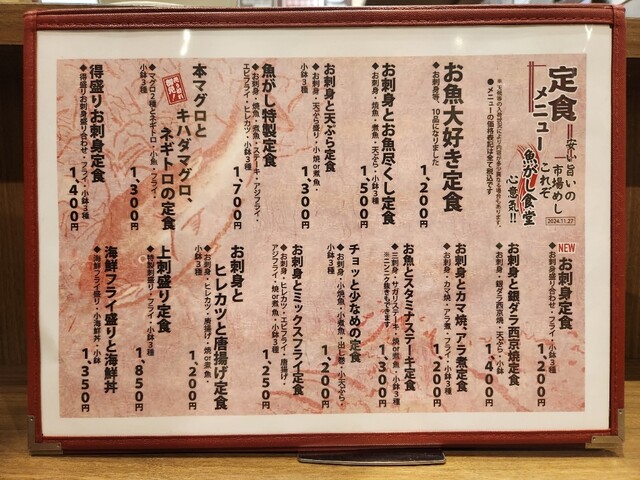 定食
メニュー
安い旨いの
市場めし
これぞ
魚がし食堂
心意気!!
2024.11.27
●メニューの価格表記は全て税込です
お魚大好き定食
◆お刺身等、10品になりました
1,200円
お刺身とお魚尽くし定食
◆お刺身・焼魚・煮魚・天ぷら・小鉢3種
1,500円
お刺身と天ぷら定食
◆お刺身・天ぷら盛り・小焼or煮魚・
小鉢3種
1,300円
魚がし特製定食
◆お刺身・焼魚・煮魚・ステーキ・アジフライ・
エビフライ・ヒレカツ・小鉢3種
1,700円
本マグロと
キハダマグロ、
ネギトロの定食
◆マグロ2種とネギトロ・小魚・フライ・
小鉢3種
1,300円
得盛りお刺身定食
◆得盛りお刺身盛り合わせ・フライ・小鉢3種
1,400円
NEW
お刺身定食
◆お刺身盛り合わせ・フライ・小鉢3種
1,200円
お刺身と銀ダラ西京焼定食
◆お刺身・銀ダラ西京焼・天ぷら・小鉢
1,400円
お刺身とカマ焼、アラ煮定食
◆お刺身・カマ焼・アラ煮・フライ・小鉢3種
1,200円
お魚とスタミナステーキ定食
◆三刺身・サガリステーキ・焼or煮魚・小鉢3種
※ニンニク抜きもできます
1,300円
チョッと少なめの定食
◆お刺身・小焼魚・小煮魚・出し巻・小天ぷら・
小鉢3種
1,200円
お刺身とミックスフライ定食
◆お刺身・ヒレカツ・エビフライ・唐揚げ・
アジフライ・焼or煮魚・小鉢3種
1,250円
お刺身と
ヒレカツと唐揚げ定食
◆お刺身・ヒレカツ・唐揚げ・焼or煮魚・
小鉢3種
1,200円
上刺盛り定食
◆特製刺盛り・フライ・小鉢3種
1,850円
海鮮フライ盛りと海鮮丼
◆海鮮フライ盛り・小海鮮丼・小鉢
1,350円